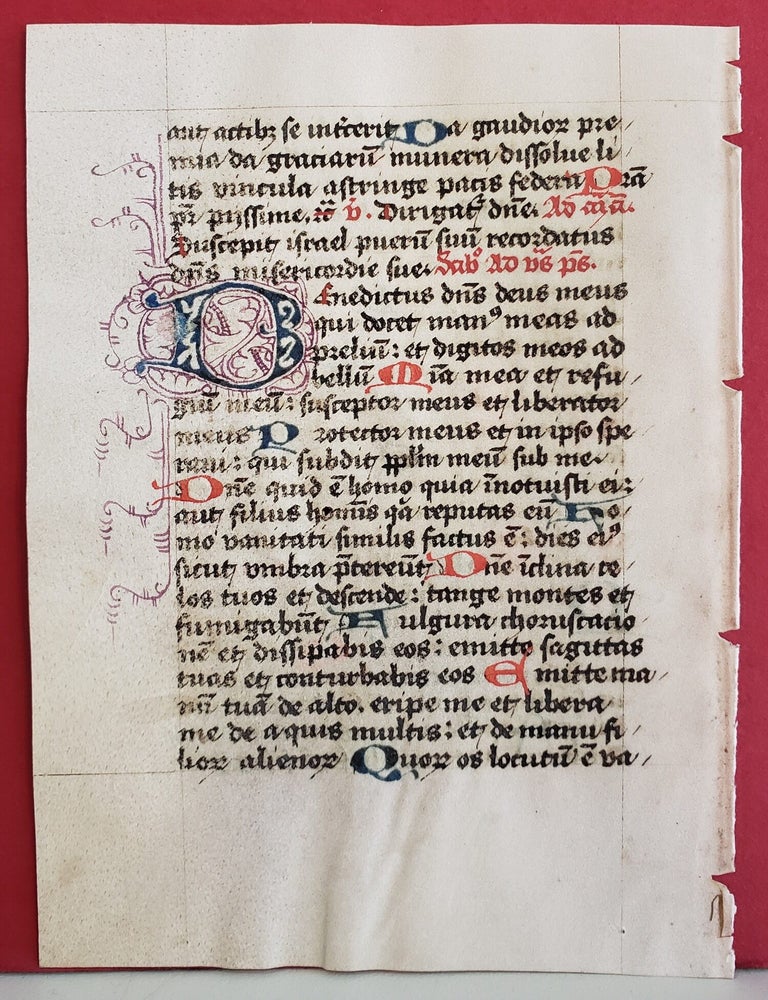 aut actibꝫ se int̄cerit Da gaudioꝝ pre
mia da graciarū munera dissolue li
tis vincula astringe pacis federa Prā
pr̄ pijssime. v̄. Dirigat̄ dn̄e. Ad
Suscepit israel puerū suū recordatus
dn̄s misericordie sue. Sabᵒ Ad vs̄ ps̄.
Benedictus dn̄s deus meus
qui docet manꝰ meas ad
preliū: et digitos meos ad
belliū Mīa mea et refu
giū meū: susceptor meus et liberator
meus Protector meus et in ipso spe
raui: qui subdit pplm̄ meū sub me.
Dn̄e quid ē homo quia īnotuisti ei:
aut filius homīs qā reputas eū Ho
mo vanitati similis factus ē: dies eiꝰ
sicut vmbra p̄tereūt Dn̄e īclina ce
los tuos et descende: tange montes et
fumigabūt Fulgura choruscatio
nē et dissipabis eos: emitte sagittas
tuas et conturbabis eos Emitte ma
nū tuā de alto. eripe me et libera
me de aquis multis: et de manu fi
lioꝝ alienoꝝ Quoꝝ os locutū ē va